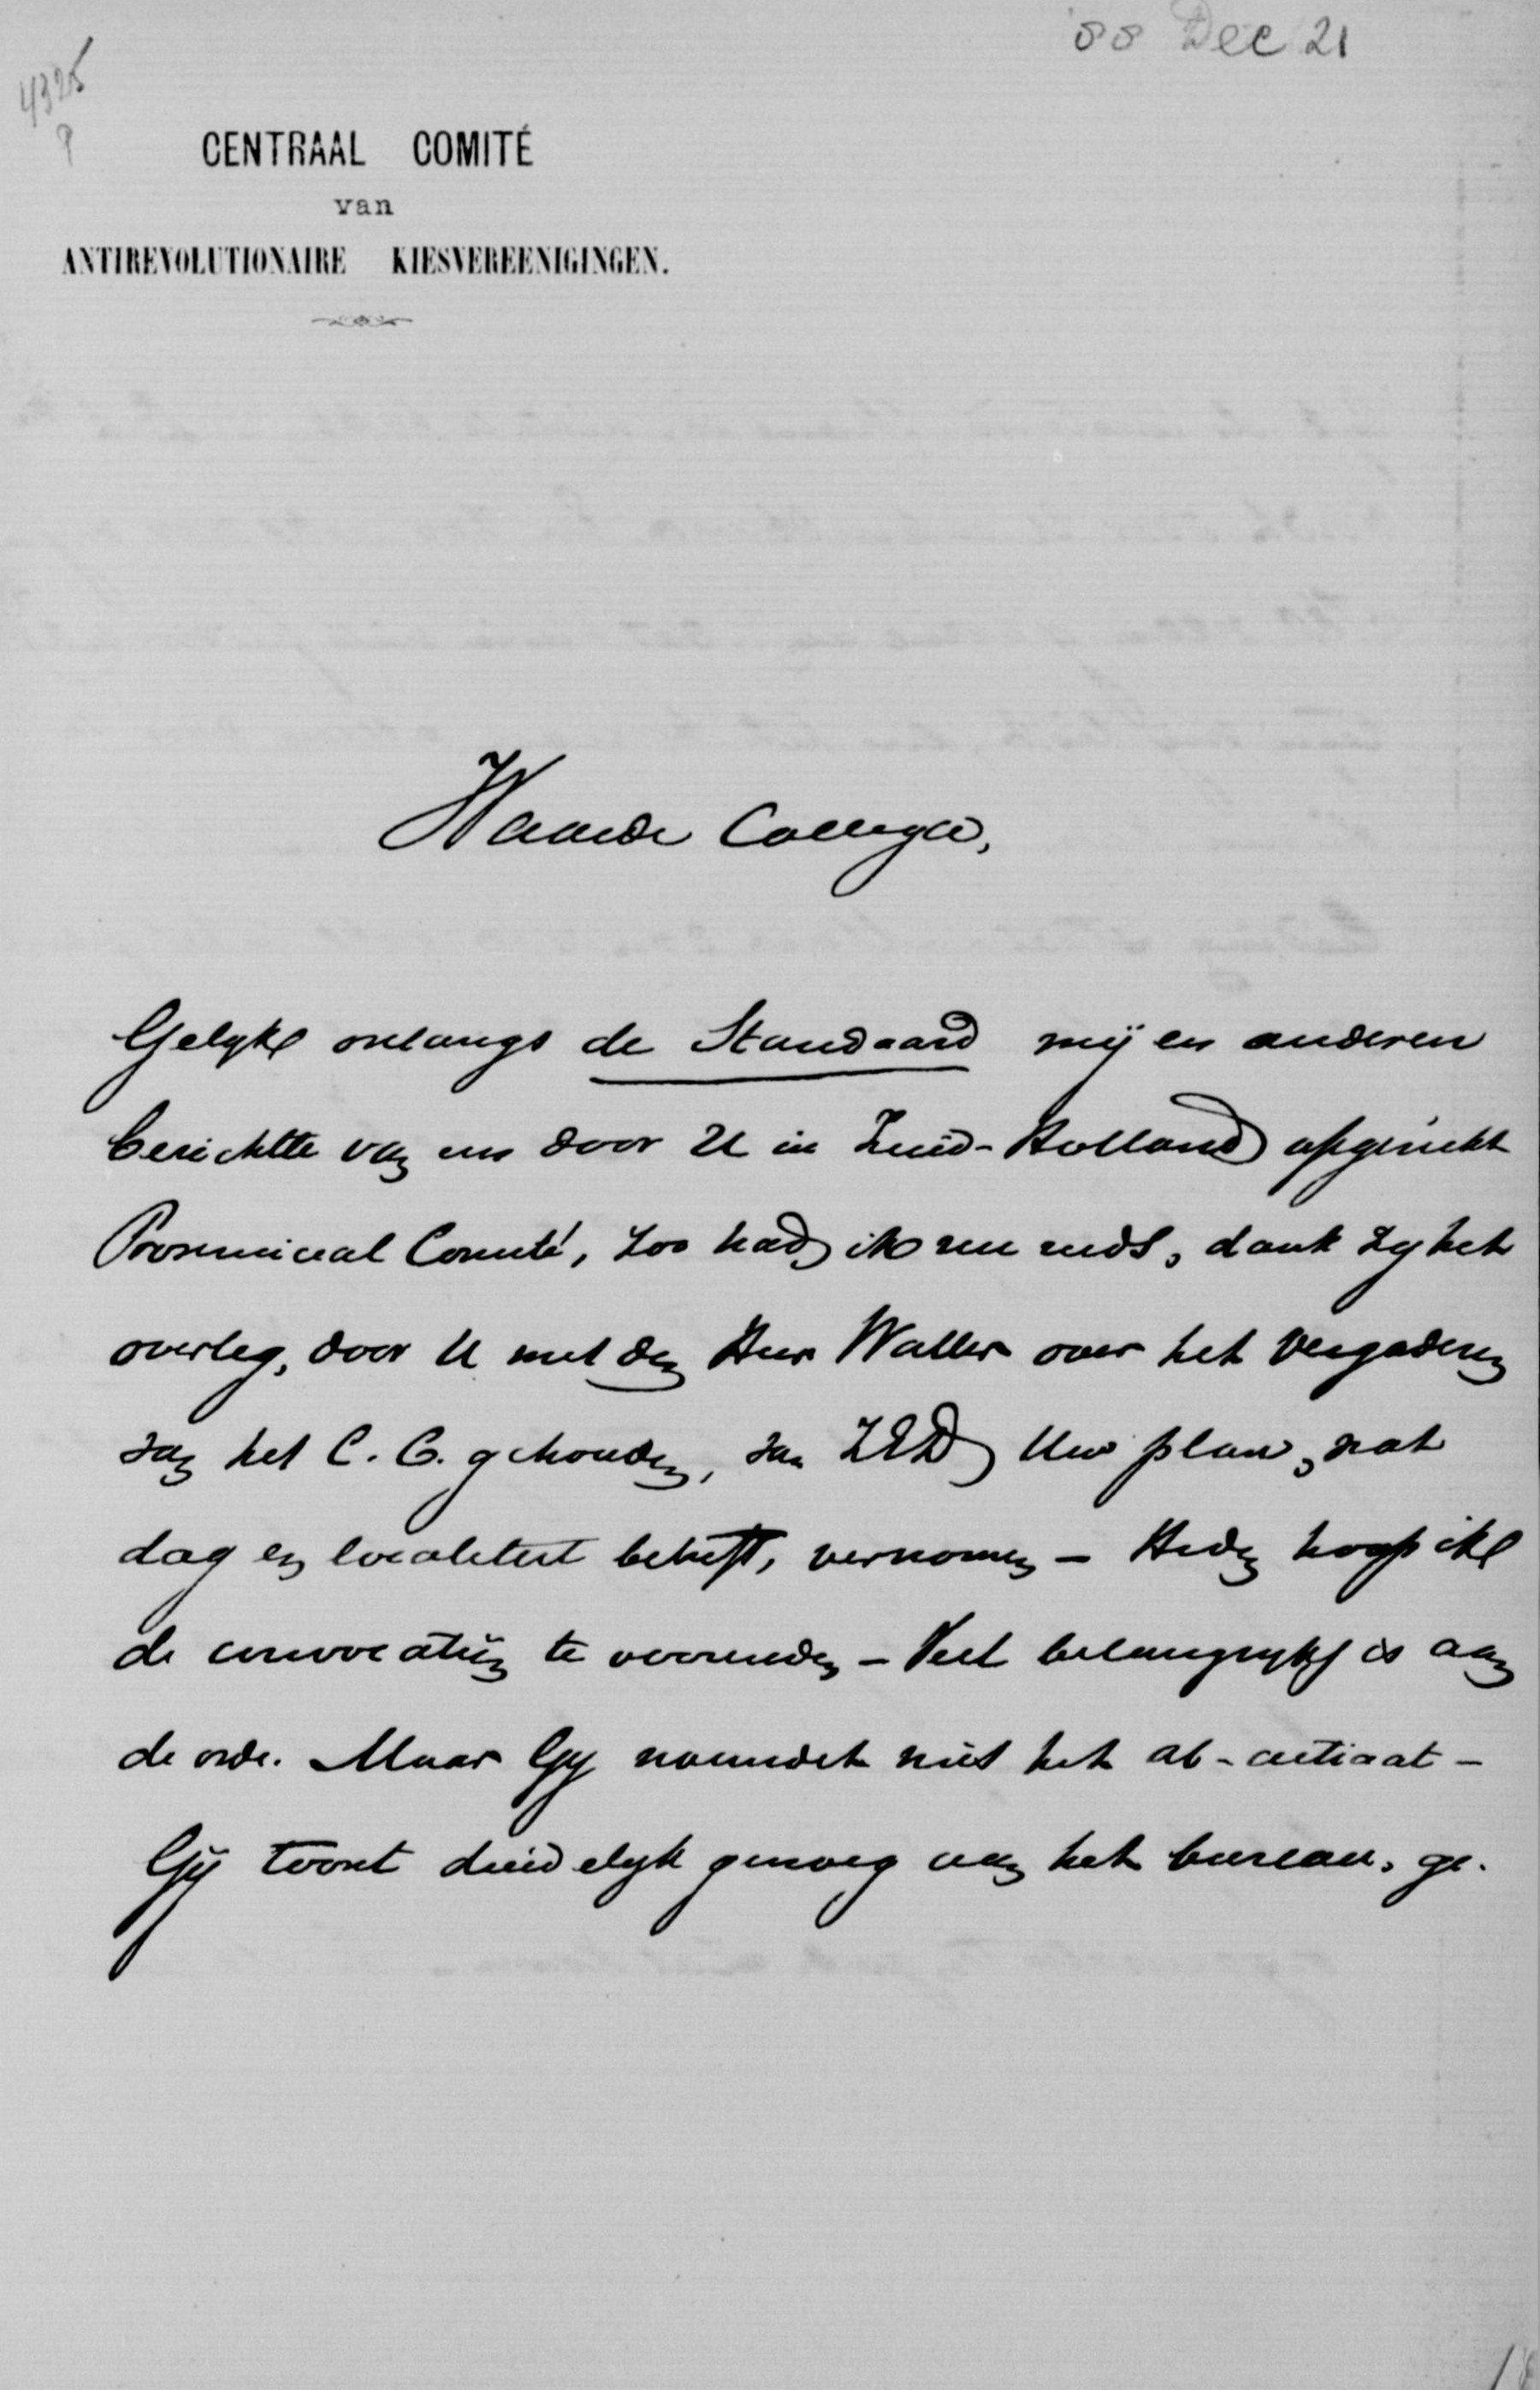 '88 Dec 21
4325
?
CENTRAAL COMITÉ
van
ANTIREVOLUTIONAIRE KIESVEREENIGINGEN.
Waarde Collega,
Gelyk onlangs de Standaard mij en anderen
berichtte van een door U in Zuid-Holland opgericht
Provinciaal Comité, zoo had ik nu reeds, dank zy het
overleg, door U met den Heer Waller over het vergaderen
van het C. C. gehouden, van ZEd Uw plan, wat
dag en localiteit betreft, vernomen – Heden hoop ik
de convocatiën te verzenden – Veel belangryks is aan
de orde. Maar Gy vermeldt niet het ab-actiaat –
Gij toont duidelyk genoeg aan het bureau, ge-